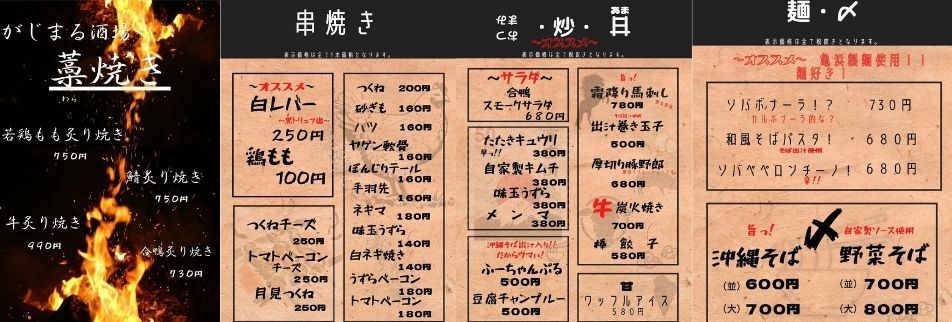 がじまる酒場
藁焼き
わら
若鶏もも炙り焼き
750円
鯖炙り焼き
750円
牛炙り焼き
990円
合鴨炙り焼き
730円
串焼き
表示価格は全て1本価格となります。
～オススメ～
白レバー
～黒トリュフ塩～
250円
鶏もも
100円
つくねチーズ
250円
トマトベーコン
チーズ
250円
月見つくね
250円
つくね 200円
砂ぎも 160円
ハツ 160円
ヤゲン軟骨
160円
ぼんじりテール
160円
手羽先
160円
ネギマ
180円
味玉うずら
140円
白ネギ焼き
140円
うずらベーコン
180円
トマトベーコン
180円
・炒・甘
あま
～オススメ～
表示価格は全て税抜きとなります。
～サラダ～
合鴨
スモークサラダ
680円
たたきキュウリ
旨っ!! 380円
自家製キムチ
380円
味玉うずら
380円
メンマ
380円
沖縄そば出汁入り!!
だからウマい!
ふーちゃんぷる
500円
豆腐チャンプルー
500円
旨っ!
霜降り馬刺し
780円
出汁巻き玉子
500円
厚切り豚野郎
680円
牛炭火焼き
700円
棒餃子
580円
甘
ワッフルアイス
580円
麺・〆
表示価格は全て税抜きとなります。
～オススメ～ 亀浜製麺使用!!
麺好き!
ソバボナーラ!? 730円
カルボナーラ的な?
和風そばパスタ! 680円
そば出汁使用
ソバペペロンチーノ! 680円
辛!!
〆
旨っ!
沖縄そば
(並) 600円
(大) 700円
自家製ソース使用
野菜そば
(並) 700円
(大) 800円